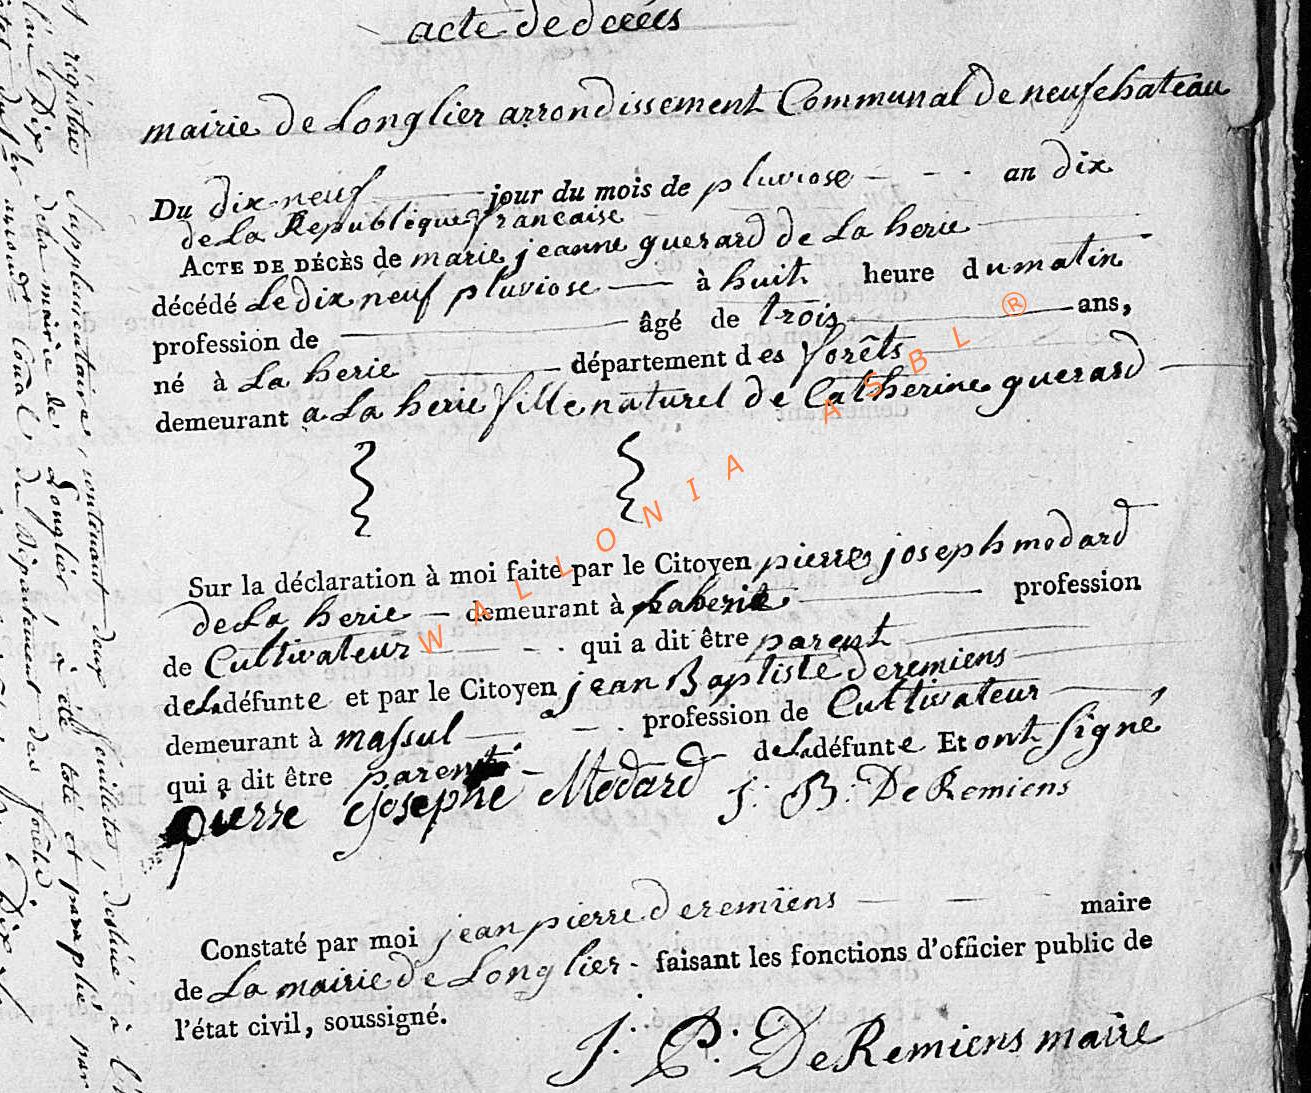 acte de décès
mairie de Longlier arrondissement Communal de neufchateau
Du dix-neuf jour du mois de pluviose - - - an dix
de La Republique francaise
ACTE DE DÉCÈS de marie jeanne guerard de La herie
décédé Le dix neuf pluviose à huit heure du matin
profession de âgé de trois ans,
né à La herie département des forêts
demeurant a La herie fille naturel de Catherine guerard
Sur la déclaration à moi faite par le Citoyen pierre joseph modard
de La herie demeurant à Laherie profession
de Cultivateur qui a dit être parent
de La défunte et par le Citoyen jean Baptiste deremiens
demeurant à massul profession de Cultivateur
qui a dit être parent de La défunte Et ont signé
pierre Josephe Modard J: B: De Remiens
Constaté par moi jean pierre deremiens maire
de La mairie de Longlier - faisant les fonctions d'officier public de
l'état civil, soussigné.
J. P. De Remiens maire
WALLONIA ASBL ®
registre Supplementaire, contenant deux feuillets, destiné à
Dix de la mairie de Longlier, à été coté et paraphé par
du Département des forêts